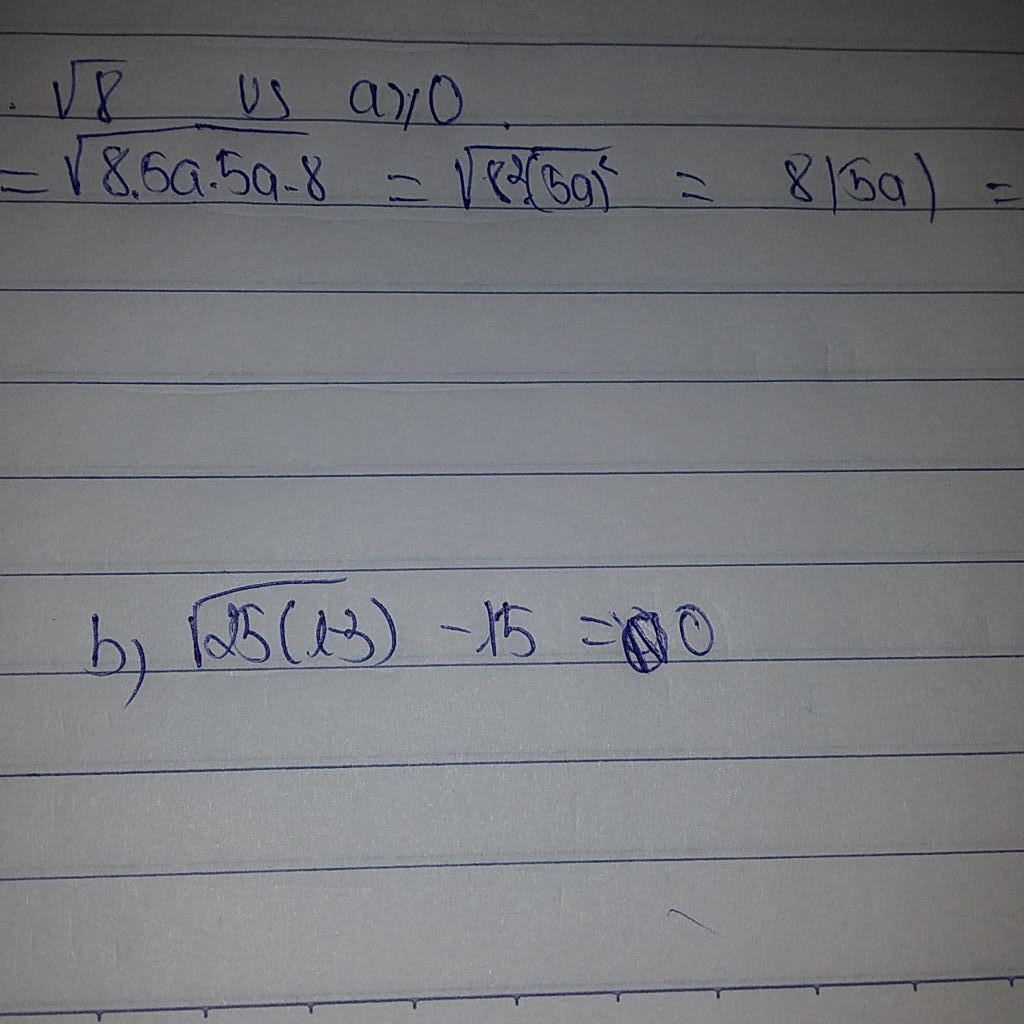 . √8 vs a≥0.
= √8.5a.5a.8 = √8²(5a)² = 8|5a| =
b) √25(1-3) - 15 = 0